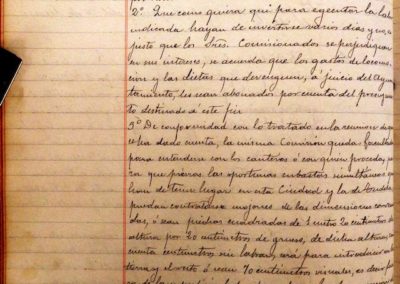 2º Que como quiera que para egecutar la labor
indicada hayan de invertirse varios dias y es
justo que los Sres. Comisionados se perjudiquen
en sus interese, se acuerda que los gastos de locomo
cion y las dietas que devenguen, á juicio del Ayun
tamiento, les sean abonados por cuenta del presupues
to destinado á este fin
3º De conformidad con lo tratado en la reunion de que
se ha dado cuenta, la misma Comision queda facultada
para entenderse con los canteros ó con quien proceda, para
que previas las oportunas subastas simultáneas que
han de tener lugar en esta Ciudad y la de
puedan contratarse mojones de las dimensiones
das, ó sean piedras cuadradas de 1 metro 20 centimetros de
altura por 20 centimetros de grueso, de dicha altura,
cuenta centimetros sin labrar, será para introducir en
tierra y el resto ó sean 70 centimetros visuales, es decir